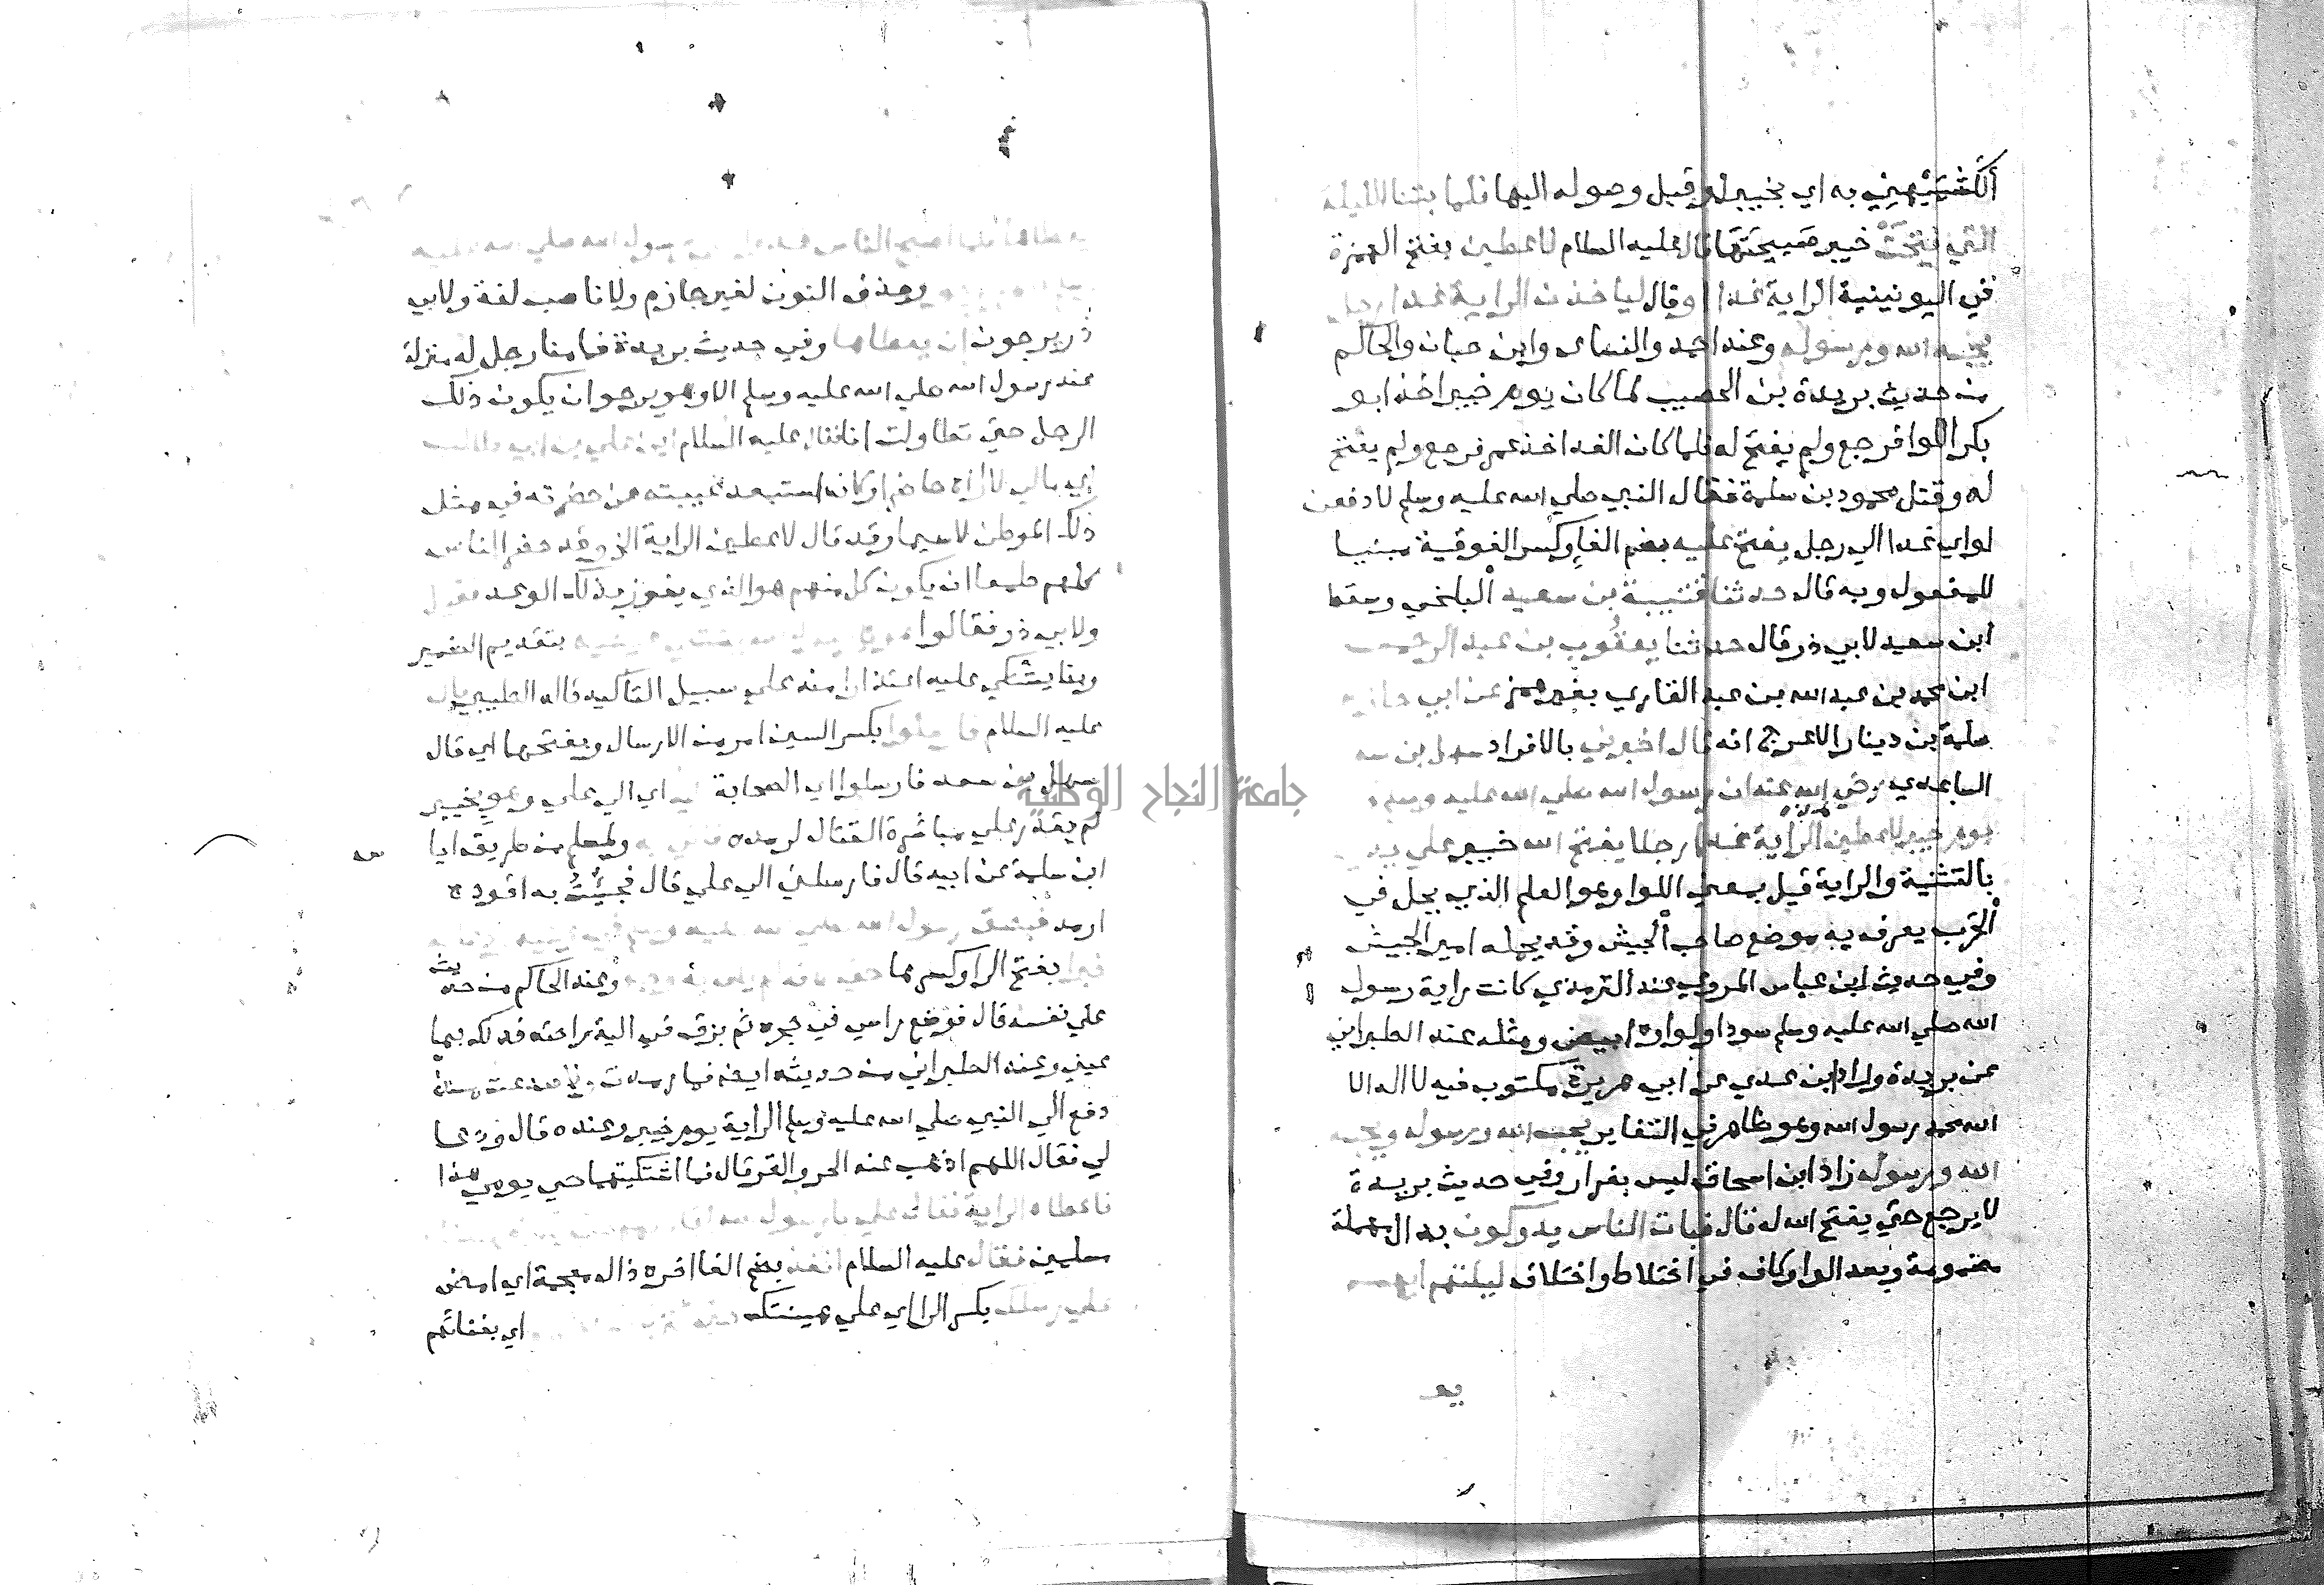 به اي بخيبر او قبل وصوله اليها فلما بتنا الليلة
التي فتحت خيبر صبيحتها قال عليه السلام لاعطين بفتح الهمزة
في اليونينية الراية غدا او قال لياخذن الراية غدا رجل
يحبه الله ورسوله وعند احمد والنساى وابن حبان والحاكم
من حديث بريدة بن الحصيب لما كان يوم خيبر اخذ ابو
بكر اللوا فرجع ولم يفتح له فلما كان الغد اخذ عمر فرجع ولم يفتح
له وقتل محمود بن سلمة فقال النبي صلي الله عليه وسلم لادفعن
لواي غدا الي رجل يفتح عليه بضم الفا وكسر الفوقية مبنيا
للمفعول وبه قال حدثنا قتيبة بن سعيد البلخي وسقط
ابن سعيد لابي ذر قال حدثنا يعقوب بن عبد الرحمن
ابن محمد بن عبد الله بن عبد القاري بغير همز عن ابي حازم
سلمة بن دينار الاعرج انه قال اخبرني بالافراد سهل بن سعد
الساعدي رضي الله عنه ان رسول الله صلي الله عليه وسلم
يوم خيبر لاعطين هذه الراية غدا رجلا يفتح الله خيبر علي يديه
بالتثنية والراية قيل بمعني اللوا وهو العلم الذي يحمل في
الحرب يعرف به موضع صاحب الجيش وقد يحمله امير الجيش
وفي حديث ابن عباس المروي عند الترمذي كانت راية رسول
الله صلي الله عليه وسلم سودا ولواوه ابيض ومثله عند الطبراني
عن بريدة وزاد ابن عدي عن ابي هريرة مكتوب فيه لا اله الا
الله محمد رسول الله وهو ظاهر في التغاير يحب الله ورسوله ويحبه
الله ورسوله زاد ابن اسحاق ليس بفرار وفي حديث بريدة
لا يرجع حتي يفتح الله له قال فبات الناس يدوكون بدال مهملة
مضمومة وبعد الواو كاف في اختلاط واختلاف ليلتهم ايهم
يعطاها فلما اصبح الناس غدوا علي رسول الله صلي الله عليه
وحذف النون لغير جازم ولا ناصب لغة ولابي
ذر يرجون ان يعطاها وفي حديث بريدة فما منا رجل له منزلة
عند رسول الله صلي الله عليه وسلم الا وهو يرجو ان يكون ذلك
الرجل حتي تطاولت انا فقال عليه السلام اين علي بن ابي طالب
اي مالي لا اراه حاضرا وكانه استبعد غيبته عن حضرته في مثل
ذلك الموطن لا سيما وقد قال لاعطين الراية الخ وقد حضر الناس
كلهم طمعا ان يكون كل منهم هو الذي يفوز بذلك الوعد فقيل
ولابي ذر فقالوا هو يا رسول الله يشتكي عينيه بتقديم الضمير
وبنا يشتكي عليه اعتذارا منه علي سبيل التاكيد قاله الطيبي قال
عليه السلام فارسلوا بكسر السين امر من الارسال وبفتحها اي قال
سهل بن سعد فارسلوا اي الصحابة اليه اي الي علي وهو بخيبر
لم يقدر علي مباشرة القتال لرمده فاتي به ولمسلم من طريق ايا
سه
ابن سلمة عن ابيه قال فارسلني الي علي قال فجئت به اقوده
ارمد فبصق رسول الله صلي الله عليه وسلم في عينيه
فبرا بفتح الرا وكسرها وعند الحاكم من حديث
علي نفسه قال فوضع راسي في حجره ثم بزق في الية راحته فدلك بها
عيني وعند الطبراني من حديثه ايضا فما رمدت ولا صدعت منذ
دفع الي النبي صلي الله عليه وسلم الراية يوم خيبر وعنده قال ودعا
لي فقال اللهم اذهب عنه الحر والقر قال فما اشتكيتهما حتي يومي هذا
فاعطاه الراية فقال علي يا رسول الله
مسلمين فقال عليه السلام انفذ بضم الفا اخره ذال معجمة اي امض
علي رسلك بكسر الرا اي علي هينتك اي بفنائهم